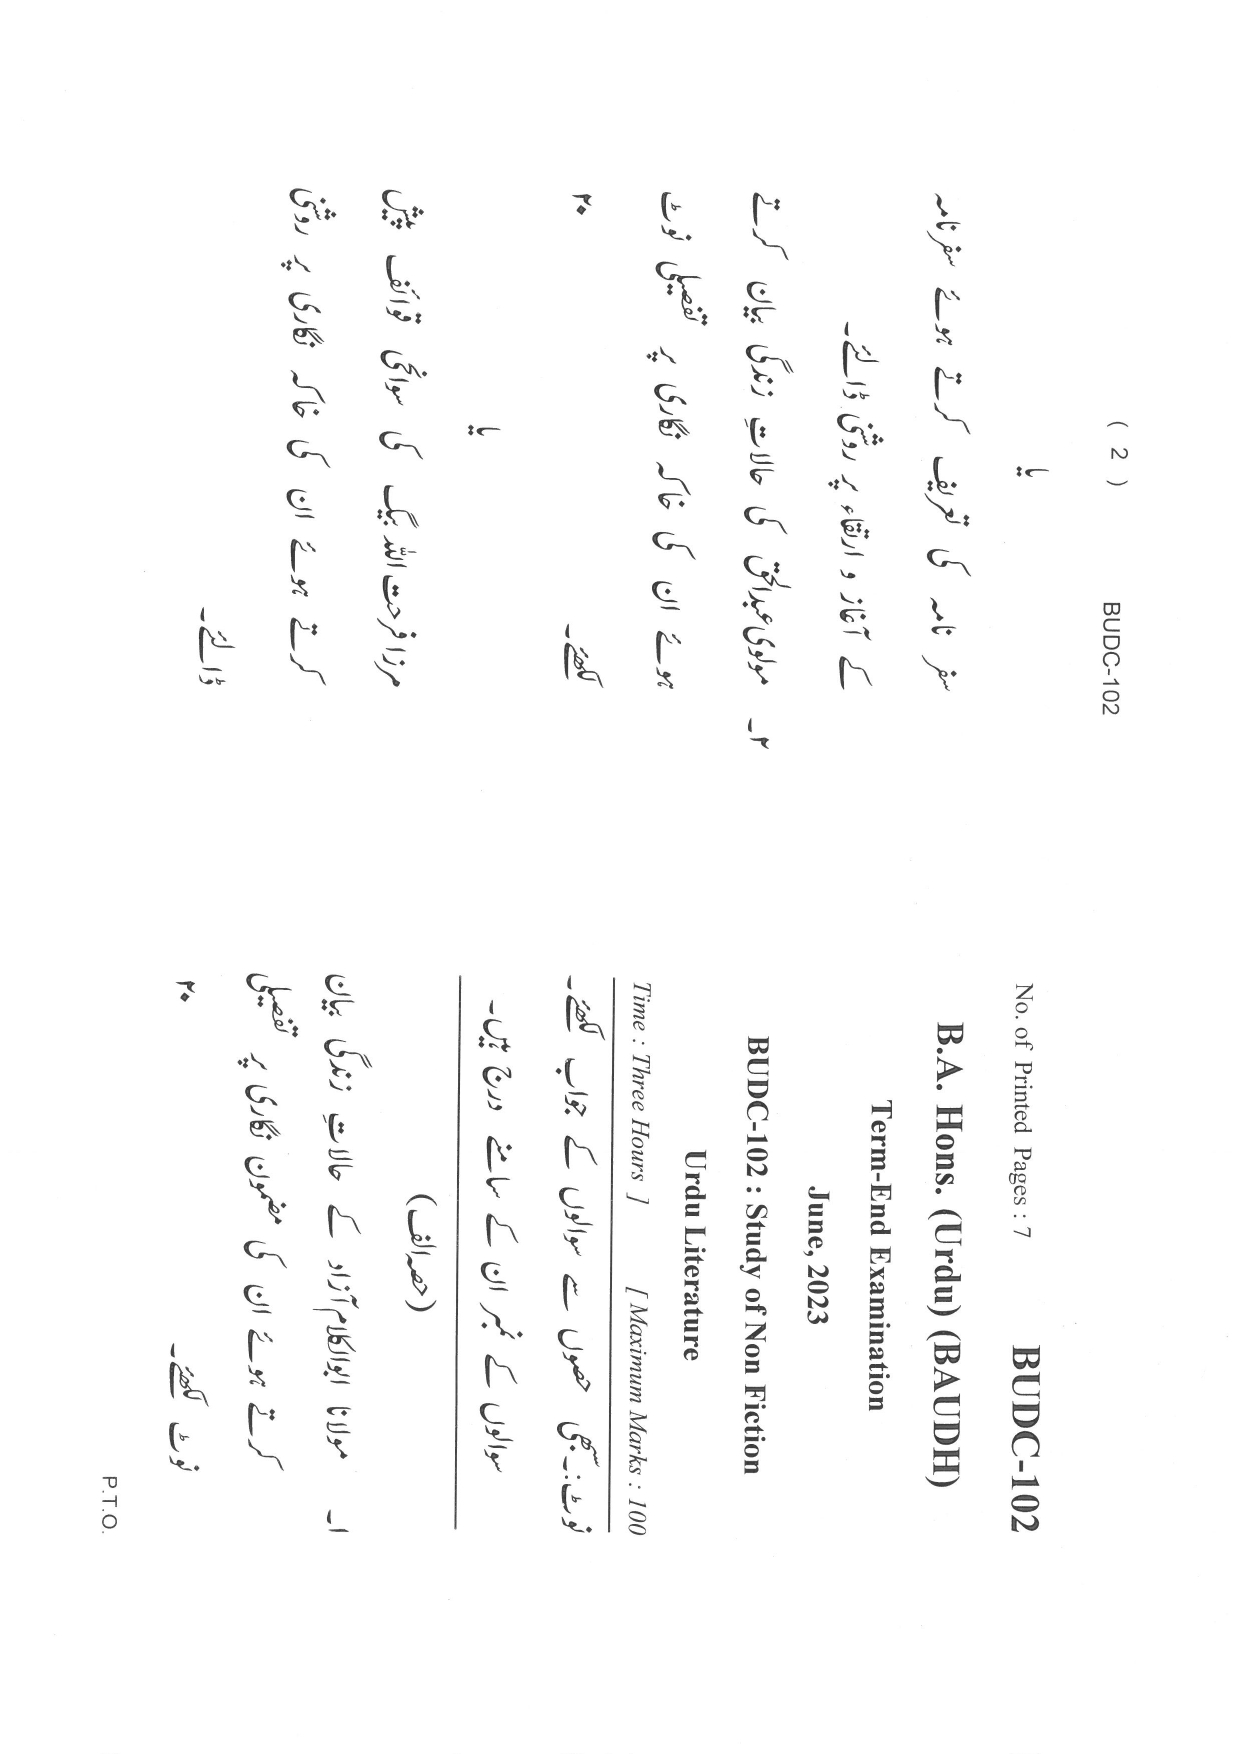 No. of Printed Pages : 7 BUDC-102
B.A. Hons. (Urdu) (BAUDH)
Term-End Examination
June, 2023
BUDC-102 : Study of Non Fiction
Urdu Literature
Time : Three Hours ] [ Maximum Marks : 100
نوٹ:۔ سبھی حصوں سے سوالوں کے جواب لکھئے۔
سوالوں کے نمبر ان کے سامنے درج ہیں۔
(حصہ الف)
۱۔ مولانا ابوالکلام آزاد کے حالاتِ زندگی بیان
کرتے ہوئے ان کی مضمون نگاری پر تفصیلی
نوٹ لکھئے۔ ۲۰
P.T.O.
( 2 ) BUDC-102
یا
سفر نامہ کی تعریف کرتے ہوئے سفرنامہ
کے آغاز و ارتقاء پر روشنی ڈالئے۔
۲۔ مولوی عبدالحق کی حالاتِ زندگی بیان کرتے
ہوئے ان کی خاکہ نگاری پر تفصیلی نوٹ
لکھئے۔ ۲۰
یا
مرزا فرحت اللہ بیگ کی سوانحی قوائف پیش
کرتے ہوئے ان کی خاکہ نگاری پر روشنی
ڈالئے۔